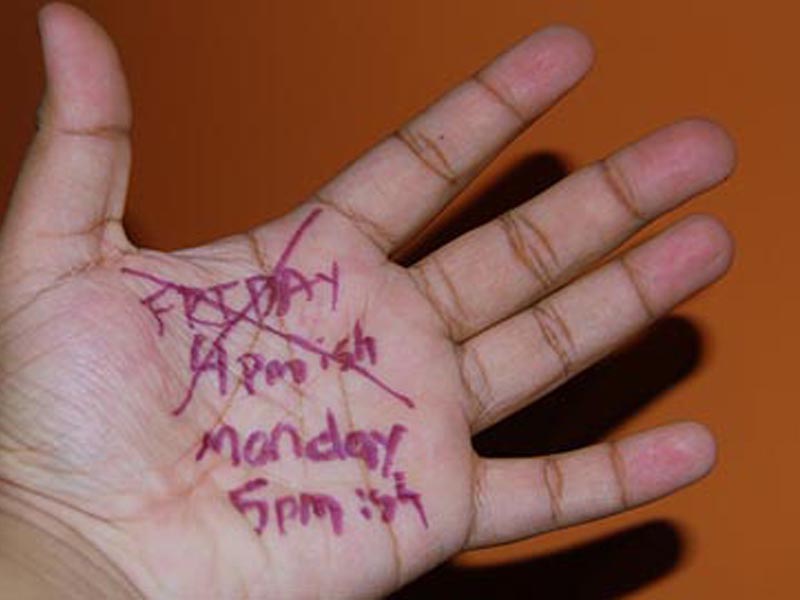 FRIDAY
4pm ish
Monday
5pm ish